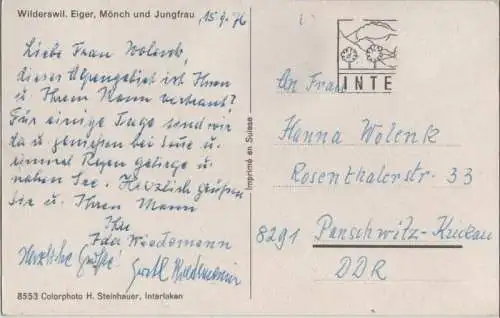 Wilderswil. Eiger, Mönch und Jungfrau
15.9.76
Liebe Frau Wolenk,
dieses Alpengebiet ist Ihnen
u. Ihrem Mann vertraut?
Für einige Tage sind wir
da u. genießen bei u.
einmal Regen u.
nahen See. Herzlich grüßen
Sie u. Ihren Mann
Ihre
Ida Wiedemann
Herzliche Grüße! Wiedemann
8553 Colorphoto H. Steinhauer, Interlaken
Imprimé en Suisse
INTE
An Frau
Hanna Wolenk
Rosenthalerstr. 33
8291 Panschwitz-Kuckau
DDR